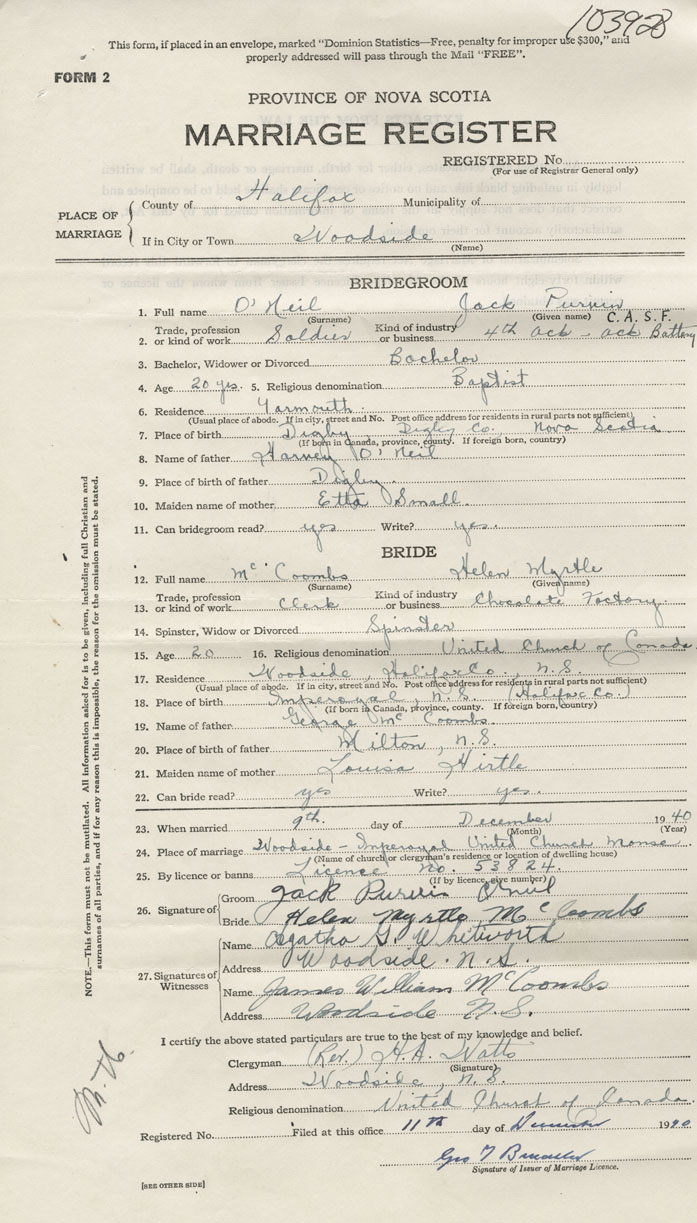 103928
This form, if placed in an envelope, marked "Dominion Statistics—Free, penalty for improper use $300," and
properly addressed will pass through the Mail "FREE".
FORM 2
PROVINCE OF NOVA SCOTIA
MARRIAGE REGISTER
REGISTERED No.
(For use of Registrar General only)
PLACE OF MARRIAGE
County of Halifax Municipality of
If in City or Town Woodside
(Name)
BRIDEGROOM
1. Full name O'Neil Jack
(Surname) (Given name) C.A.S.F.
2. Trade, profession or kind of work Soldier Kind of industry or business 4th ack-ack Battery
3. Bachelor, Widower or Divorced Bachelor
4. Age 20 yrs. 5. Religious denomination Baptist
6. Residence Yarmouth
(Usual place of abode. If in city, street and No. Post office address for residents in rural parts not sufficient)
7. Place of birth Digby Digby Co., Nova Scotia
(If born in Canada, province, county. If foreign born, country)
8. Name of father Harvey O'Neil
9. Place of birth of father Digby
10. Maiden name of mother Etta Small
11. Can bridegroom read? yes Write? yes.
BRIDE
12. Full name McCoombs Helen Myrtle
(Surname) (Given name)
13. Trade, profession or kind of work Clerk Kind of industry or business Chocolate Factory
14. Spinster, Widow or Divorced Spinster
15. Age 20 16. Religious denomination United Church of Canada
17. Residence Woodside, Halifax Co., N.S.
(Usual place of abode. If in city, street and No. Post office address for residents in rural parts not sufficient)
18. Place of birth Imperoyal, N.S. (Halifax Co.)
(If born in Canada, province, county. If foreign born, country)
19. Name of father George McCoombs
20. Place of birth of father Milton, N.S.
21. Maiden name of mother Louisa Hirtle
22. Can bride read? yes Write? yes.
23. When married 9th. day of December 1940
(Month) (Year)
24. Place of marriage Woodside-Imperoyal United Church Manse
(Name of church or clergyman's residence or location of dwelling house)
25. By licence or banns Licence No. 53824.
(If by licence, give number)
26. Signature of
Groom Jack O'Neil
Bride Helen Myrtle McCoombs
27. Signatures of Witnesses
Name Agatha G. Whitworth
Address Woodside. N.S.
Name James William McCoombs
Address Woodside N.S.
I certify the above stated particulars are true to the best of my knowledge and belief.
Clergyman (Rev.) H.A. Watts
(Signature)
Address Woodside, N.S.
Religious denomination United Church of Canada.
Registered No. Filed at this office 11th day of December 1940
Geo T
Signature of Issuer of Marriage Licence.
[SEE OTHER SIDE]
NOTE.—This form must not be mutilated. All information asked for is to be given, including full Christian and
surnames of all parties, and if for any reason this is impossible, the reason for the omission must be stated.